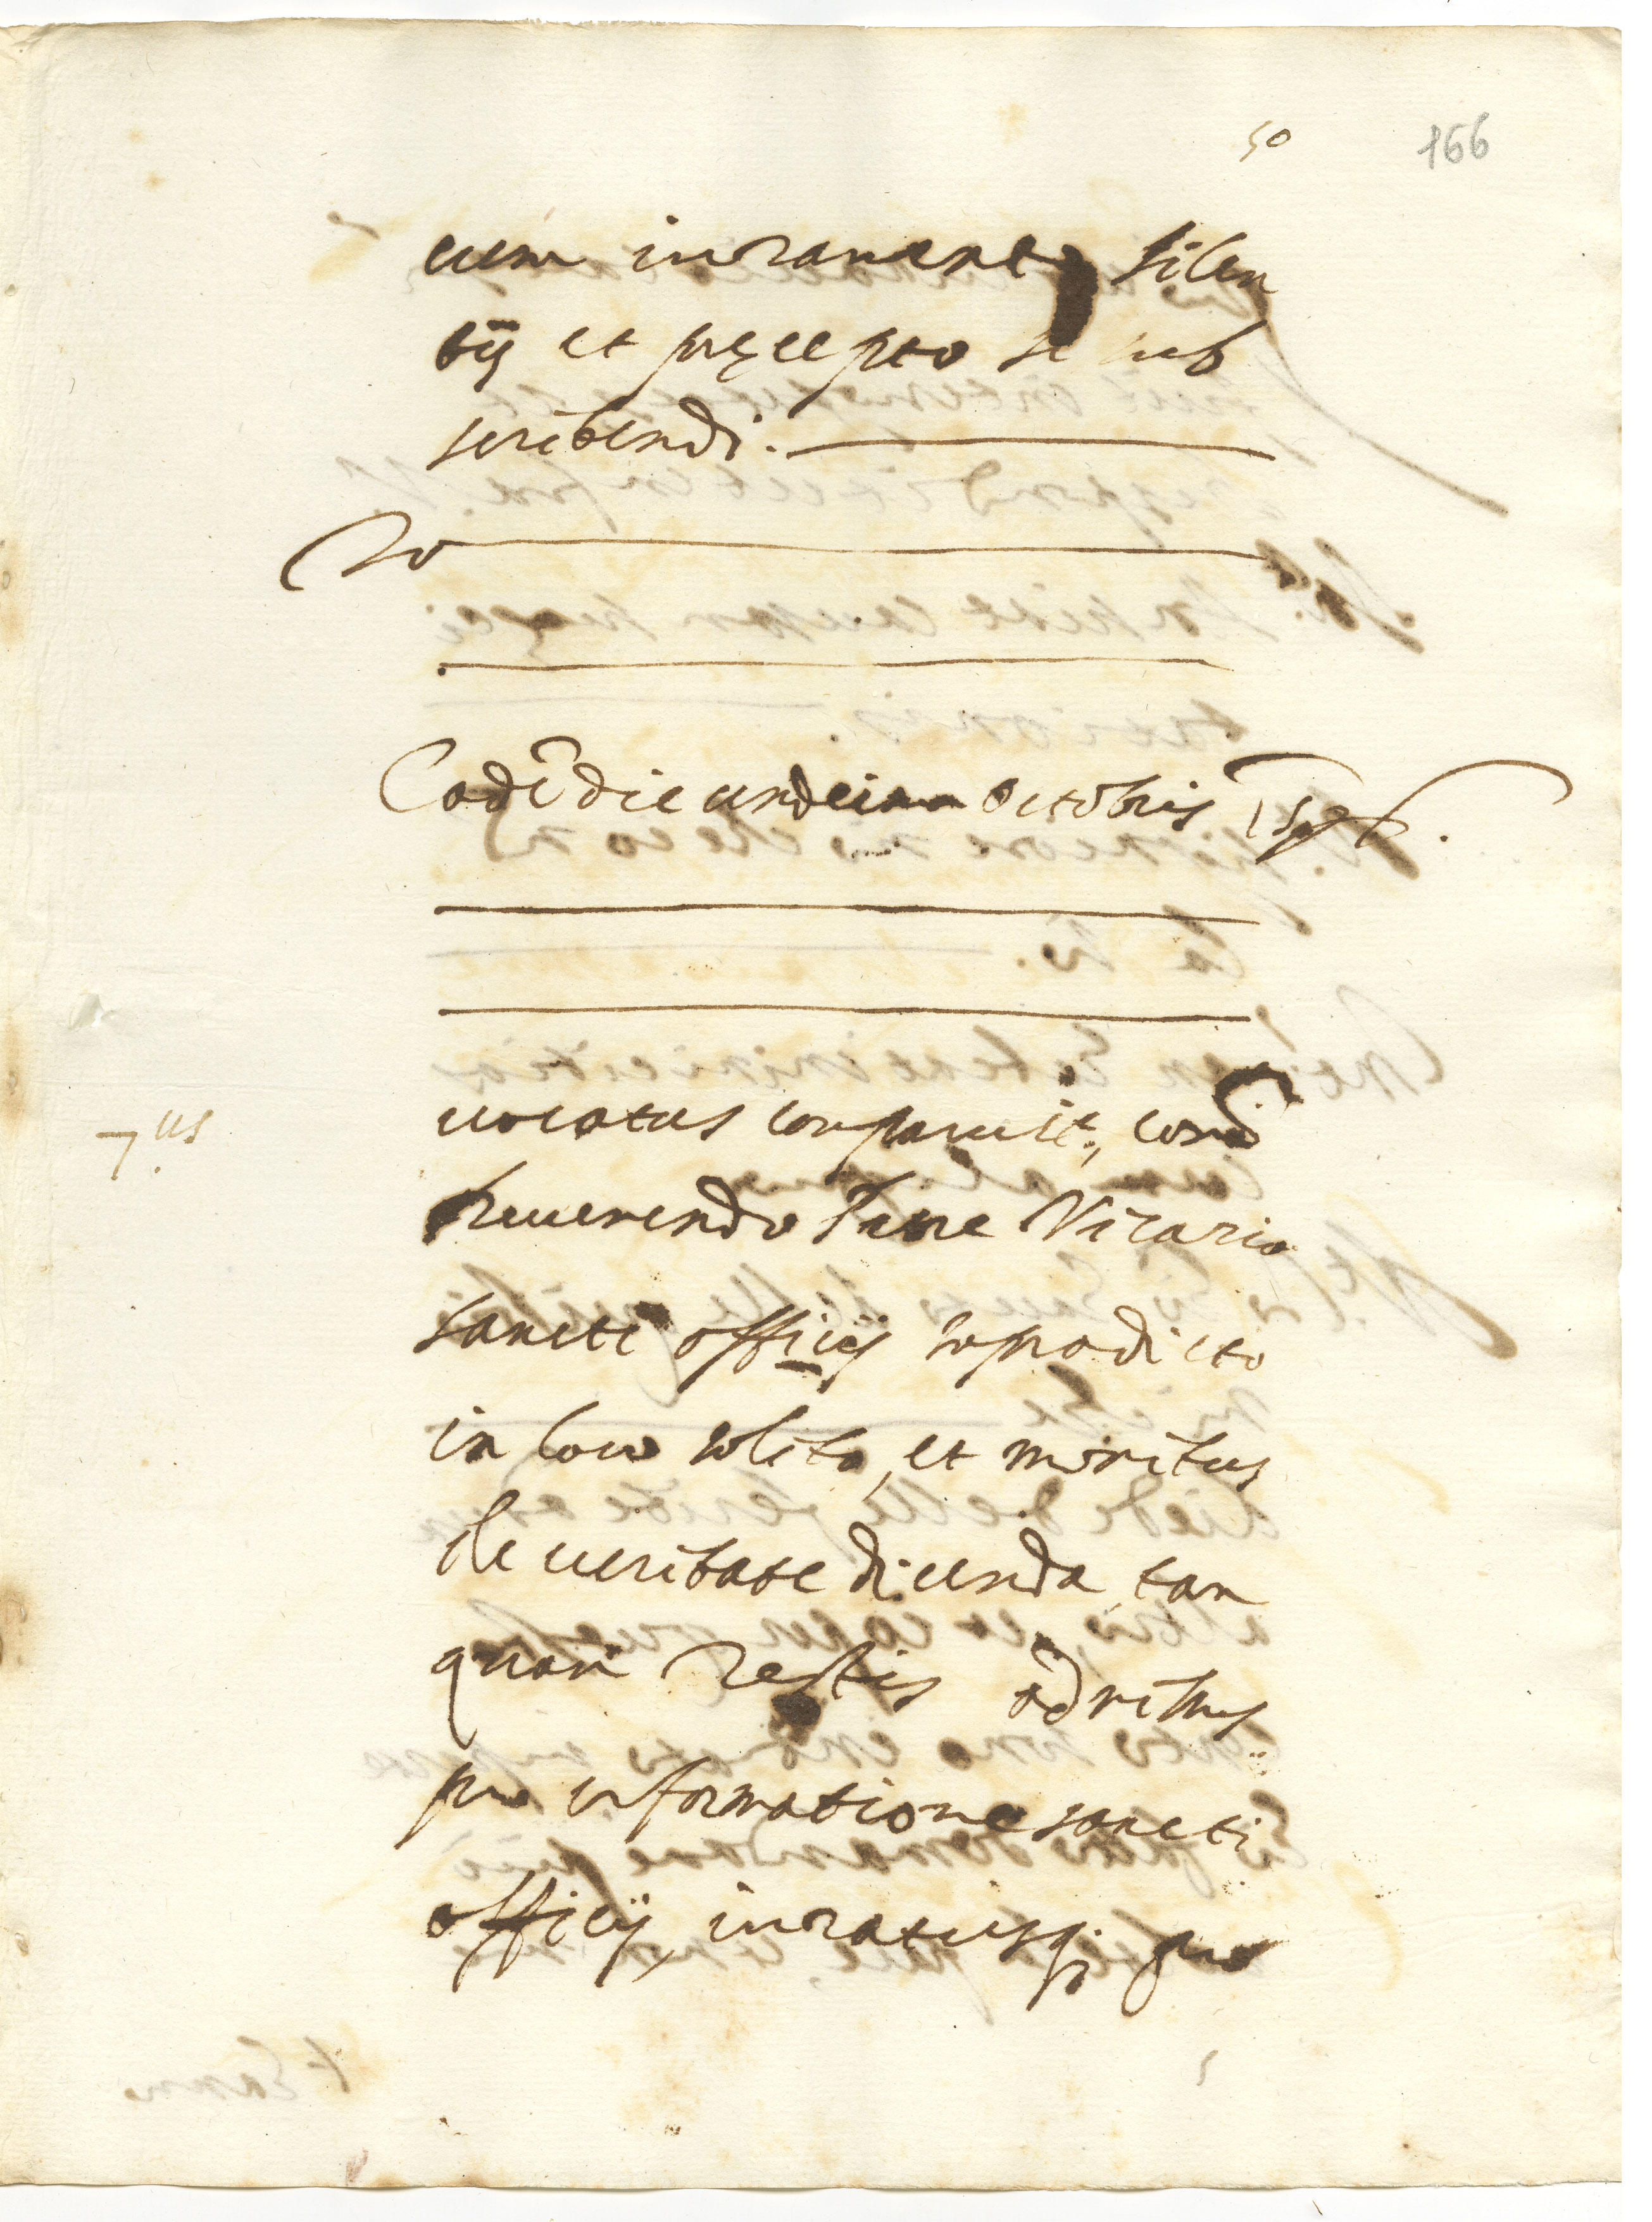 50 166
cum iuramento silen
tij et pręcepto se sub
scribendi.
Eadē die undecima octobris 1596.
7.us
uocatus comparuit, corā
Reuerendo Patre Vicario
sancti officij supradicto
in loco solito, et monitus
de ueritate dicenda tan
quam testis
pro informatione sancti
officij, iuratusq; pro